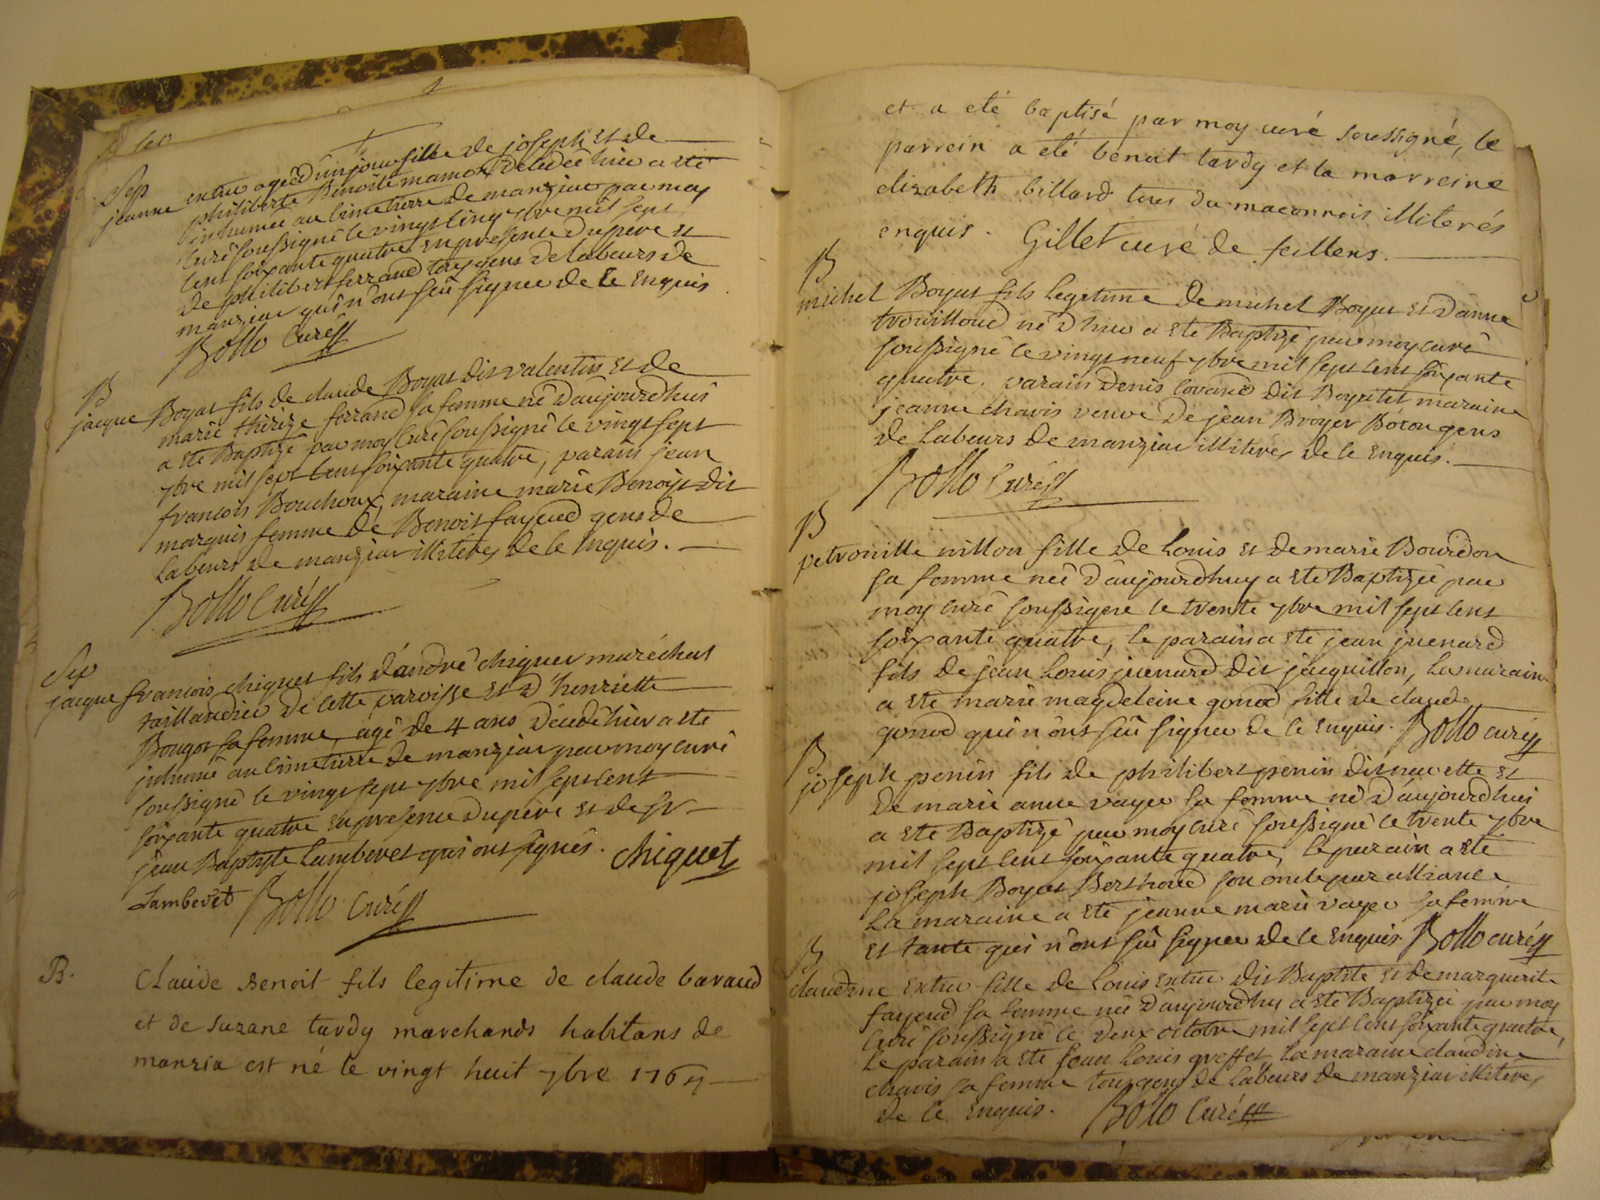 Sep
jeanne extier agée d'un jour fille de joseph et de
philiberte Benoite mamon decedée hier a ete
inhumée au Cimetierre de manziat par moy
Curé soussigné le vingt cinq 7bre mil sept
Cent soixante quatre en presence du pere et
de philibert ferrand tous gens de labeurs de
manziat qui n'ont seû signer de ce enquis
Bollo Curé
B
jacque Boyat fils de claude Boyat dit valentin et de
marie therize ferrand sa femme né d'aujourd'huï
a ete Baptizé par moy Curé soussigné le vingt sept
7bre mil sept Cent soixante quatre, parain jean
francois Bouchoux, maraine marie Benoist dit
marquis femme de Benoit fayend gens de
labeurs de manziat illiteres de ce enquis.
Bollo Curé
Sep
jacque francois chiquet fils d'andré chiquet maréchal
taillandier de cette paroisse et d'henriette
Bongot sa femme, agé de 4 ans décédé hier a ete
inhumé au Cimetierre de manziat par moy curé
soussigné le vingt sept 7bre mil sept cent
soixante quatre en presence du pere et de sr
jean Baptiste Lamberet qui ont signés. Chiquet
Lamberet Bollo Curé
B.
Claude Benoit fils legitime de claude bavaud
et de suzane tardy marchands habitans de
manzia est né le vingt huit 7bre 1764
et a eté baptisé par moy curé soussigné, le
parrein a eté benoit tardy et la marreine
elizabeth billard tous du maconnois illiterés
enquis. Gillet curé de feillens.
B
michel Boyat fils legitime de michel Boyat et d'anne
trouilloud né d'hier a ete Baptizé par moy curé
soussigné le vingt neuf 7bre mil sept cent soixante
quatre. parain denis Covand dit Boyatet maraine
jeanne chavis veuve de jean Broyer Boron gens
de labeurs de manziat illiteres de ce enquis.
Bollo Curé
B
petronille nillon fille de Louis et de marie Bourdon
sa femme née d'aujourd'huy a ete Baptizée par
moy curé soussigné le trente 7bre mil sept cent
soixante quatre, le parain a ete jean juenard
fils de jean Louis juenard dit jacquillon, la maraine
a ete marie magdeleine gonod fille de claude
gonod qui n'ont seû signer de ce enquis. Bollo curé
B
joseph penin fils de philibert penin dit navette et
de marie anne vayer sa femme né d'aujourd'huï
a ete Baptizé par moy Curé soussigné le trente 7bre
mil sept cent soixante quatre, le parain a ete
joseph Boyat Berthoud son oncle par alliance
La maraine a ete jeanne marie vayer sa femme
et tante qui n'ont seû signer de ce enquis Bollo curé
B
claudine extier fille de Louis extier dit Baptite et de marguerite
fayend sa femme née d'aujourd'huy a ete Baptizée par moy
Curé soussigné le deux octobre mil sept cent soixante quatre,
Le parain a ete jean Louis greffet La maraine claudine
chavis sa femme tous gens de labeurs de manziat illiteres
de ce enquis. Bollo Curé